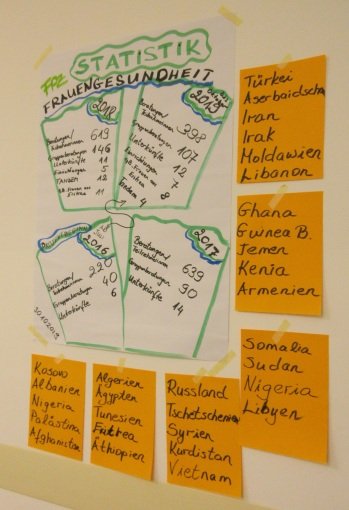 FPZ
STATISTIK
FRAUENGESUNDHEIT
2018
Beratungen/
619
Gruppenberatungen 146
Unterkünfte 11
Einrichtungen 5
TANDEM 12
11
2019
Beratungen/
398
Gruppenberatungen 107
Unterkünfte 12
Einrichtungen 7
8
Tandem 4
2016
Beratungen/
220
Gruppenberatungen 40
Unterkünfte 6
30.10.2019
2017
Beratungen/
639
Gruppenberatungen 90
Unterkünfte 14
Türkei
Aserbaidschan
Iran
Irak
Moldawien
Libanon
Ghana
Guinea B.
Jemen
Kenia
Armenien
Somalia
Sudan
Nigeria
Libyen
Kosovo
Albanien
Nigeria
Palästina
Afghanistan
Algerien
Ägypten
Tunesien
Eritrea
Äthiopien
Russland
Tschetschenien
Syrien
Kurdistan
Vietnam